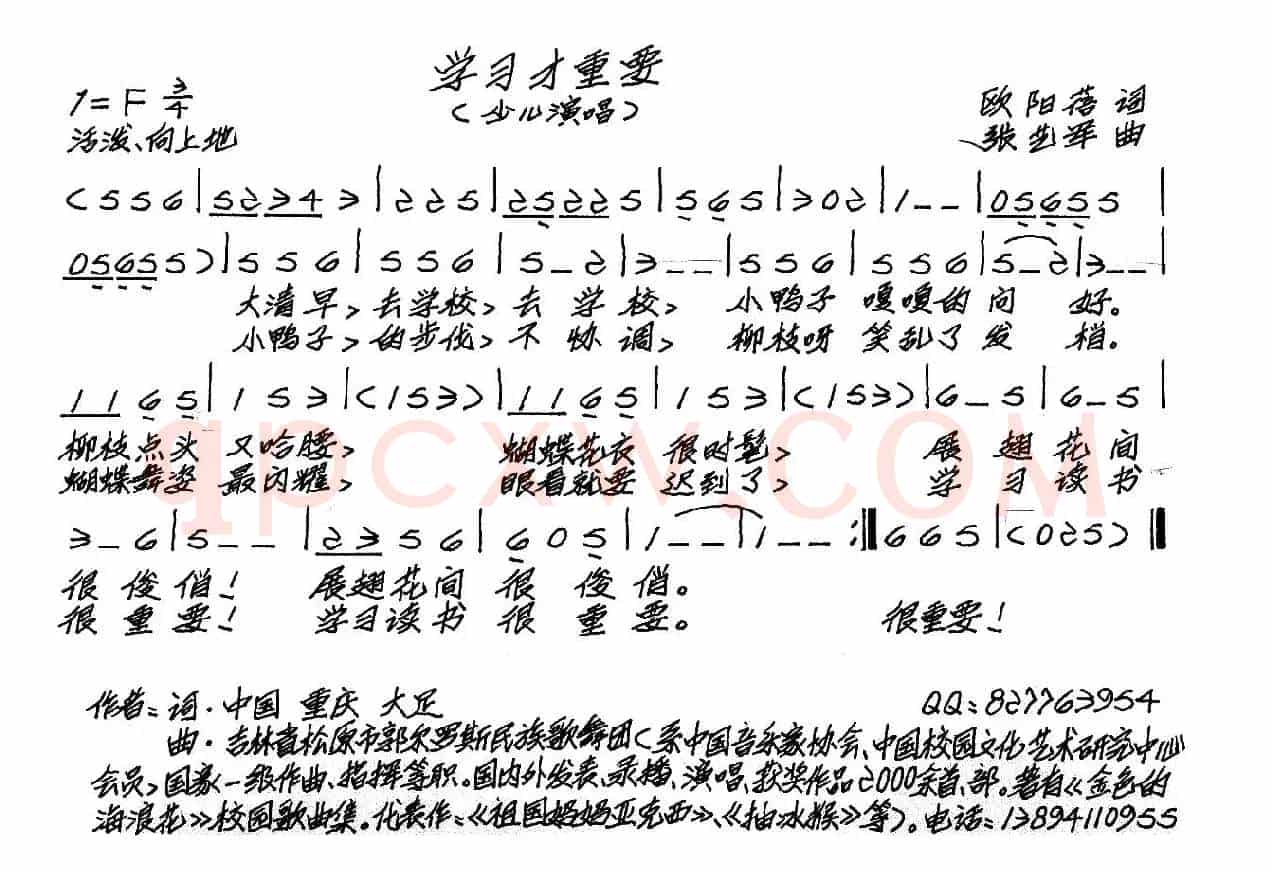 学习才重要
(少儿演唱)
1=F 3/4
活泼、向上地
欧阳蓓 词
张艺军 曲
(5 5 6 | 5 2 3 4 3 | 2 2 5 | 2 5 2 2 5 | 5 6 5 | 3 0 2 | 1 - - | 0 5 6 5 5 |
0 5 6 5 5) | 5 5 6 | 5 5 6 | 5 - 2 | 3 - - | 5 5 6 | 5 5 6 | 5 - 2 | 3 - - |
大清早, 去学校, 去 学 校, 小鸭子 嘎嘎的 问 好。
小鸭子, 的步伐, 不 协 调, 柳枝呀 笑乱了 发 梢。
1 1 6 5 | 1 5 3 | (1 5 3) | 1 1 6 5 | 1 5 3 | (1 5 3) | 6 - 5 | 6 - 5 |
柳枝点头 又哈腰, 蝴蝶花衣 很时髦, 展 翅 花 间
蝴蝶舞姿 最闪耀, 眼看就要 迟到了, 学 习 读 书
3 - 6 | 5 - - | 2 3 5 6 | 6 0 5 | 1 - - | 1 - - :‖ 6 6 5 | (0 2 5) ‖
很 俊 俏! 展翅花间 很 俊 俏。
很 重 要! 学习读书 很 重 要。 很重要!
作者: 词·中国 重庆 大足 QQ:827763954
曲·吉林省松原市郭尔罗斯民族歌舞团(系中国音乐家协会、中国校园文化艺术研究中心
会员,国家一级作曲、指挥等职。国内外发表、录播、演唱、获奖作品2000余首、部。著有《金色的
海浪花》校园歌曲集。代表作:《祖国妈妈亚克西》、《抽水猴》等)。电话:13894110955
qpcxw.COM